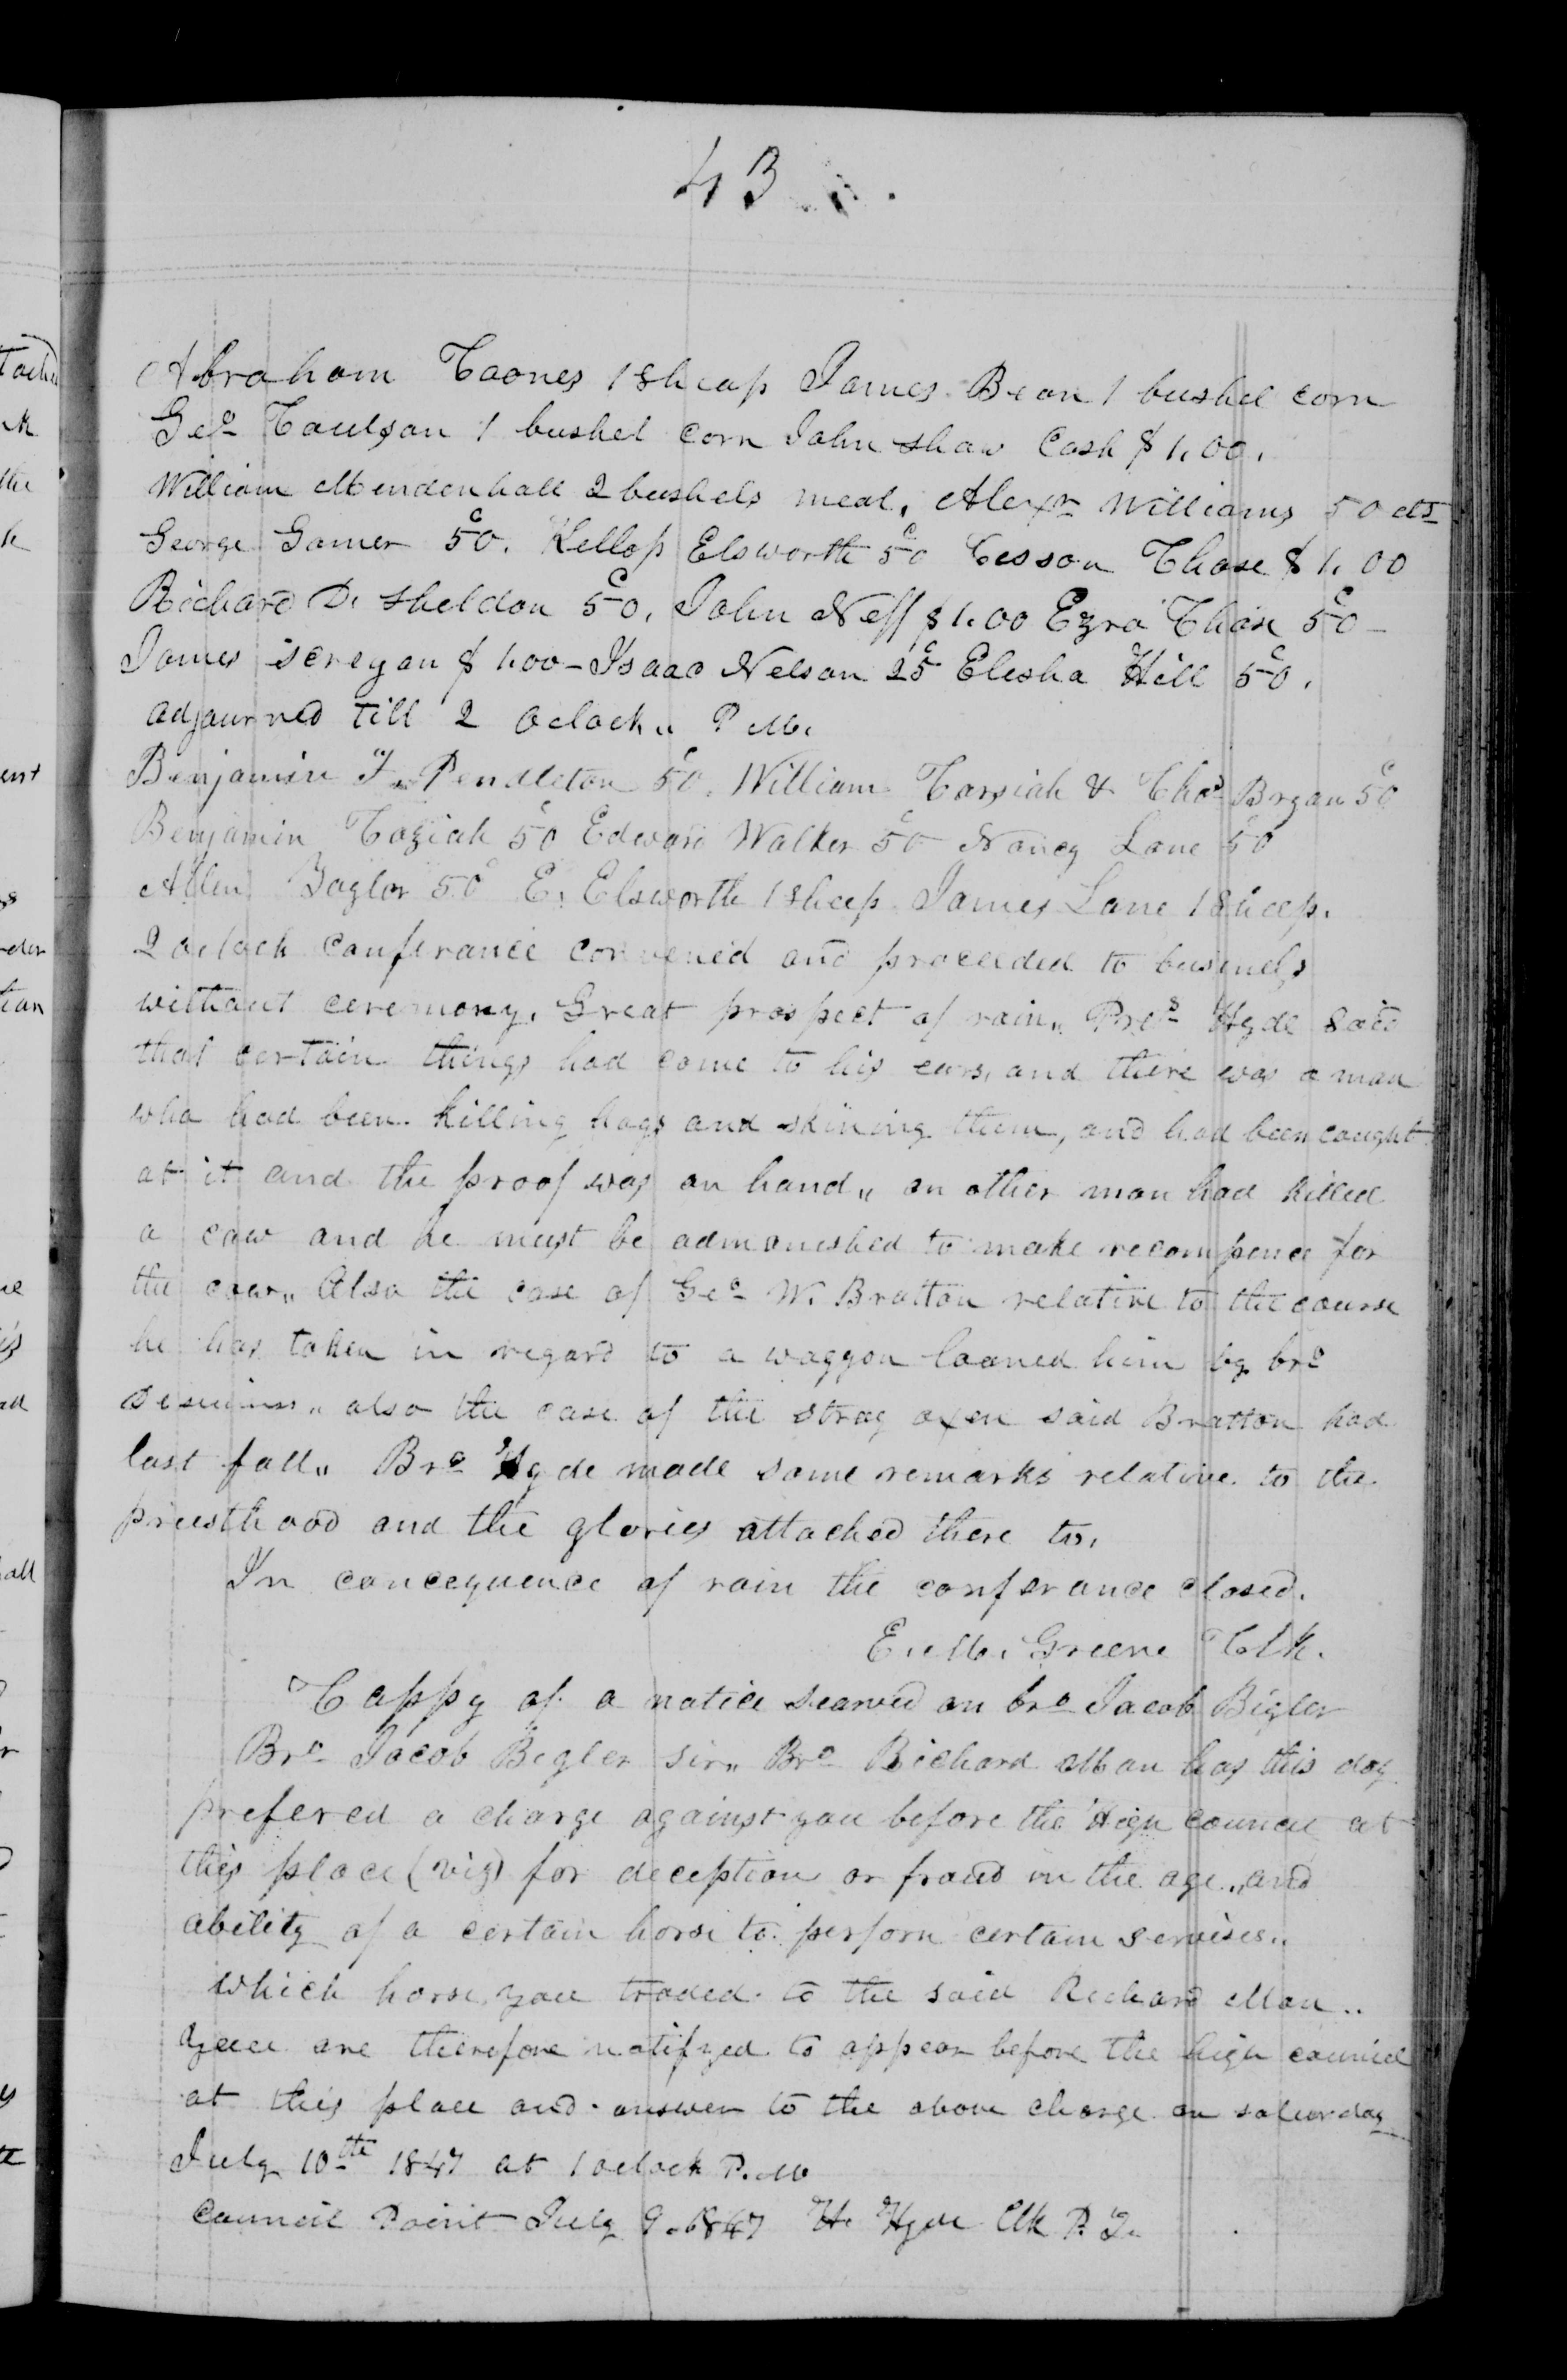 43
Abraham Coones 1 sheap James Bean 1 bushel corn
Geo Coulson 1 bushel corn John Shaw Cash $1.00.
William Mendenhall 2 bushels meal. Alexr Williams 50 cts
George Gamer 50c. Kellop Elsworth 50c Cisson Chase $1.00
Richard D. Sheldon 50c. John Neff $1.00 Ezra Chase 50c –
James $1.00 – Isaac Nelson 25c Elisha Hill 50c.
adjourned till 2 oclock„ P.M.
Benjamin F. Pendleton 50c. William Carziah & Chas Bryan 50c
Benjamin Coziah 50c Edward Walker 50c Nancy Lane 50c
Allen Taylor 50c E. Elsworth 1 sheep James Lane 1 sheep.
2 oclock conferance convened and proceeded to business
without ceremony. Great prospect of rain„ Pres Hyde said
that certain things had come to his ears, and there was a man
who had been killing hogs and skining them, and had been caught
at it and the proof was on hand„ an other man had killed
a cow and he must be admonished to make recompence for
the cow„ Also the case of Geo W. Bratton relative to the course
he has taken in regard to a waggon loaned him by bro
also the case of the stray oxen said Bratton had
last fall„ Bro Hyde made some remarks relative to the
priesthood and the glories attached there to.
In concequence of rain the conferance closed.
E. M. Greene Clk.
Coppy of a notice searved on bro Jacob Bigler
Bro Jacob Bigler sir„ Bro Richard Man has this day
prefered a charge against you before the High council at
this place (viz) for deception or fraud in the age„ and
ability of a certain horse to perform certain servises„
which horse you traded to the said Richard Man„
you are therefore notifyed to appear before the high council
at this place and answer to the above charge on saturday
July 10th 1847 at 1 oclock P.M
Council Point July 9. 1847 H. Hyde Clk P. T.